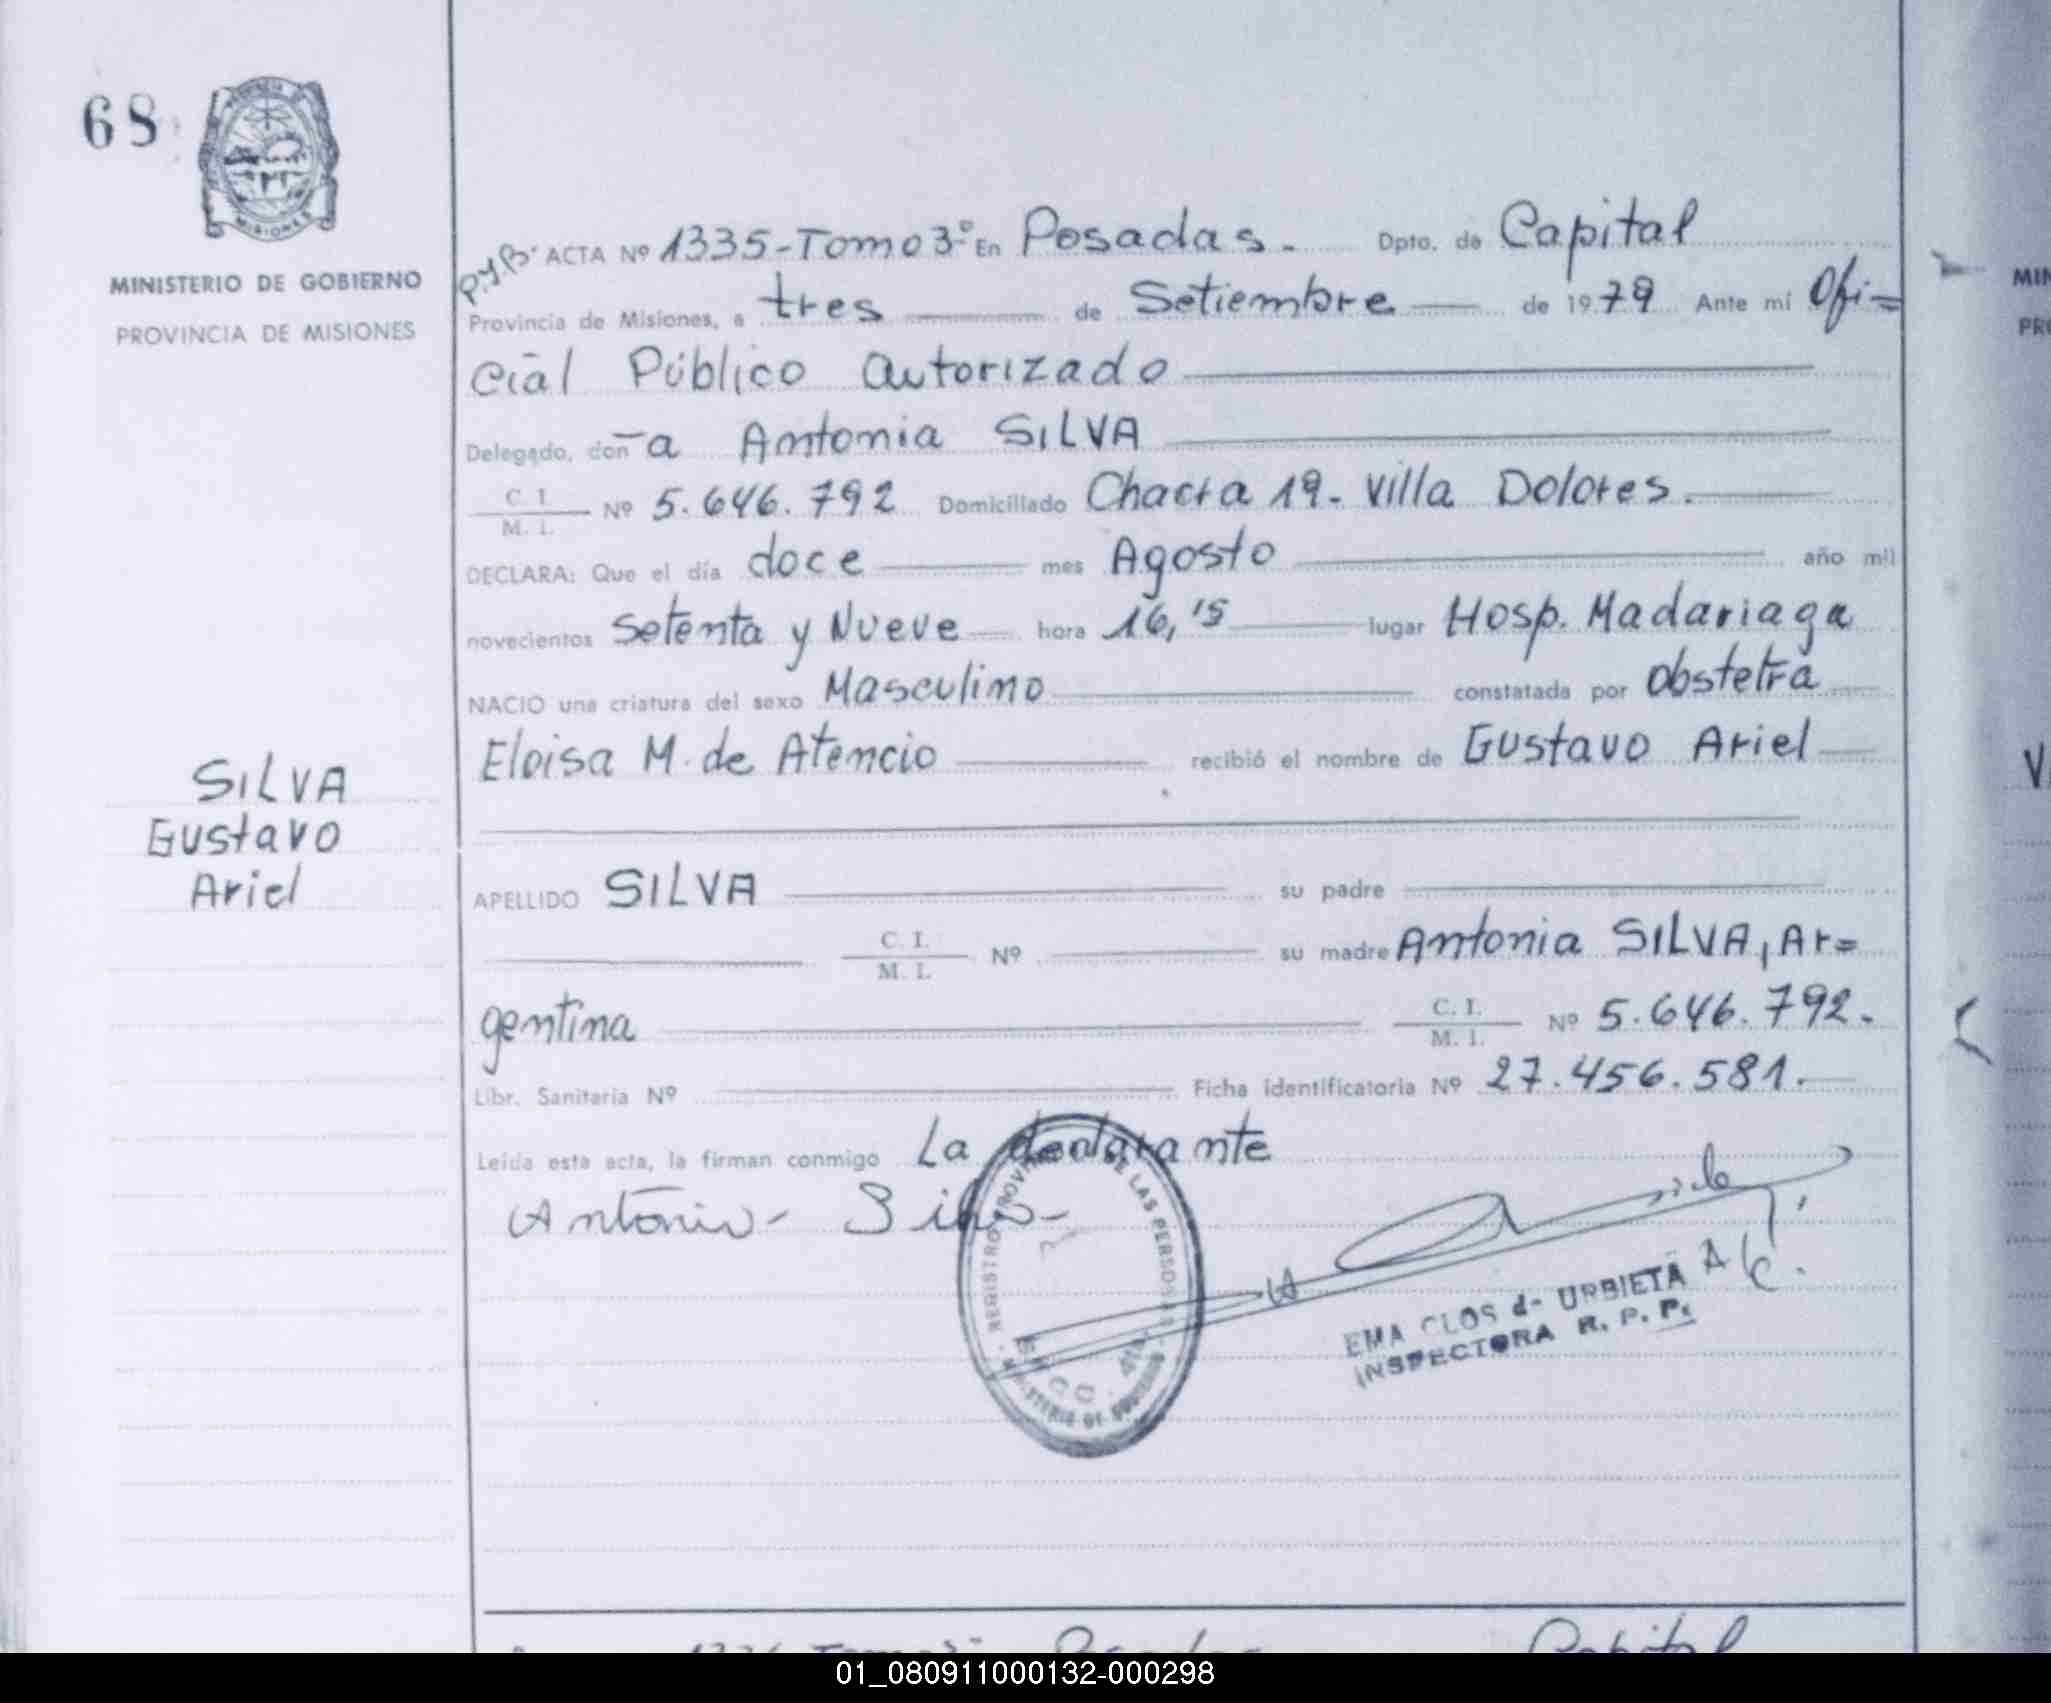 68
PROVINCIA DE
MISIONES
MINISTERIO DE GOBIERNO
PROVINCIA DE MISIONES
SILVA
Gustavo
Ariel
P.y B. ACTA Nº 1335-Tomo 3º En Posadas. Dpto. de Capital
Provincia de Misiones, a tres de Setiembre de 1979 Ante mí Ofi=
cial Público Autorizado
Delegado, don-a Antonia SILVA
C. I. / M. I. Nº 5.646.792 Domiciliado Chacra 19. Villa Dolores.
DECLARA: Que el día doce mes Agosto año mil
novecientos Setenta y Nueve hora 16,15 lugar Hosp. Madariaga
NACIO una criatura del sexo Masculino constatada por Obstetra
Eloisa M. de Atencio recibió el nombre de Gustavo Ariel
APELLIDO SILVA su padre
C. I. / M. I. Nº su madre Antonia SILVA, Ar=
gentina C. I. / M. I. Nº 5.646.792.
Libr. Sanitaria Nº Ficha identificatoria Nº 27.456.581.
Leída esta acta, la firman conmigo La declarante
Antonia - Silva -
REGISTRO PROVINCIAL DE LAS PERSONAS
MINISTERIO DE GOBIERNO
EMA CLOS de URBIETA
INSPECTORA R. P. P.
1336 Tomo 3º Posadas Capital
MIN
PRO
01_080911000132-000298